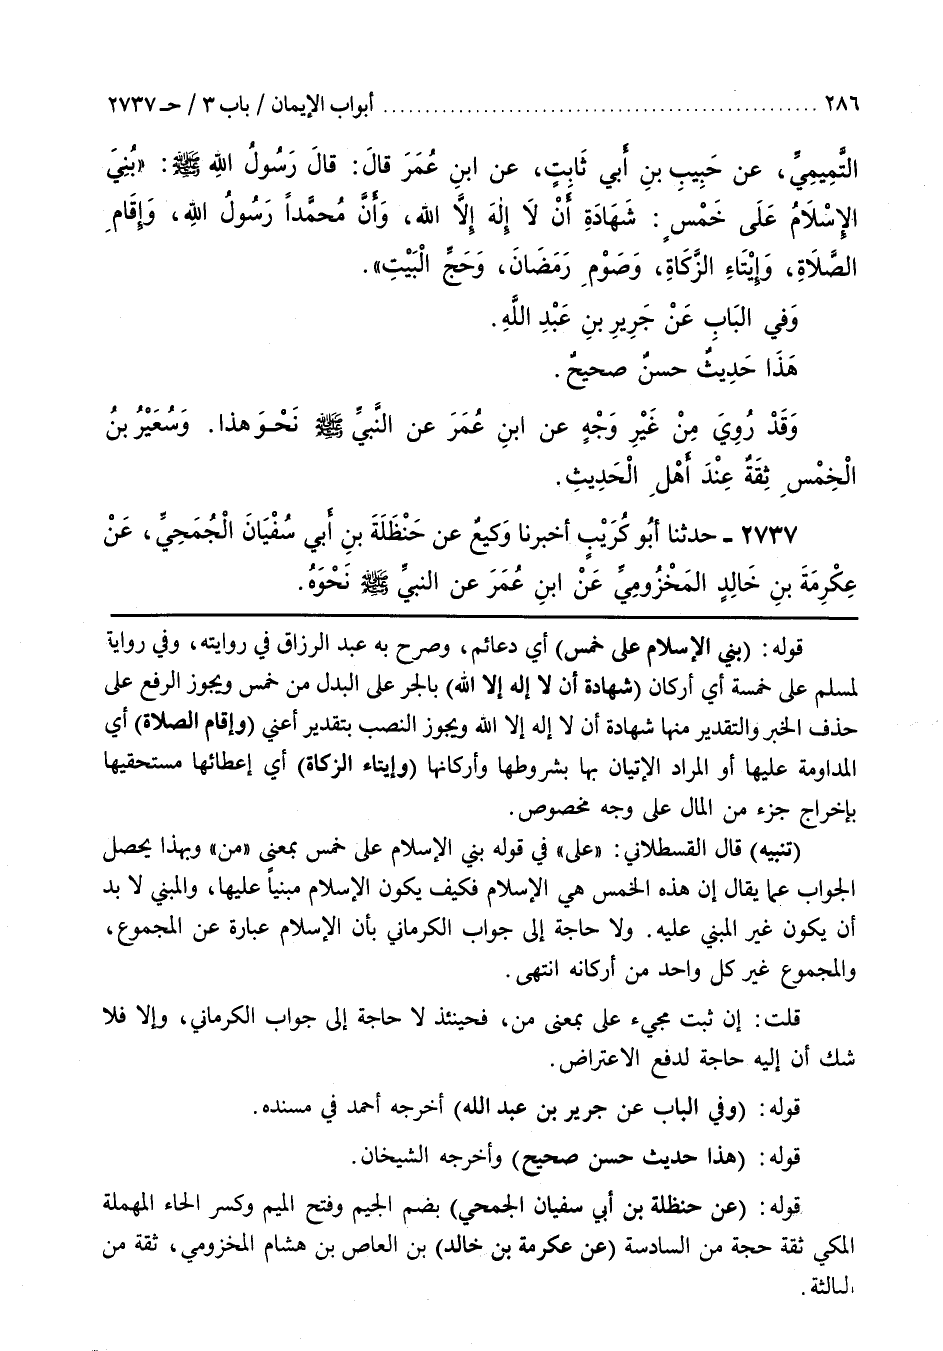 ٢٨٦ ........................ أبواب الإيمان / باب ٣ / حـ ٢٧٣٧
التَّمِيمِيِّ، عن حَبِيبِ بنِ أَبي ثَابِتٍ، عن ابنِ عُمَرَ قالَ: قالَ رَسُولُ اللهِ ﷺ: «بُنِيَ
الإِسْلَامُ عَلَى خَمْسٍ: شَهَادَةِ أَنْ لَا إِلٰهَ إِلَّا الله، وَأَنَّ مُحمَّداً رَسُولُ اللهِ، وَإِقَامِ
الصَّلَاةِ، وَإِيْتَاءِ الزَّكَاةِ، وَصَوْمِ رَمَضَانَ، وَحَجِّ الْبَيْتِ».
وَفي البَابِ عَنْ جَرِيرِ بنِ عَبْدِ اللَّهِ.
هَذَا حَدِيثٌ حسنٌ صحيحٌ.
وَقَدْ رُوِيَ مِنْ غَيْرِ وَجْهٍ عن ابنِ عُمَرَ عن النَّبيِّ ﷺ نَحْـوَ هذا. وَسُعَيْرُ بنُ
الْخِمْسِ ثِقَةٌ عِنْدَ أَهْلِ الْحَدِيثِ.
٢٧٣٧ ـ حدثنا أَبُو كُرَيْبٍ أخبرنا وَكيعٌ عن حَنْظَلَةَ بنِ أَبي سُفْيَانَ الْجُمَحِيِّ، عَنْ
عِكْرِمَةَ بنِ خَالِدٍ المَخْزُومِيِّ عَنْ ابنِ عُمَرَ عن النبيِّ ﷺ نَحْوَهُ.
قوله: (بني الإسلام على خمس) أي دعائم، وصرح به عبد الرزاق في روايته، وفي رواية
لمسلم على خمسة أي أركان (شهادة أن لا إله إلا الله) بالجر على البدل من خمس ويجوز الرفع على
حذف الخبر والتقدير منها شهادة أن لا إله إلا الله ويجوز النصب بتقدير أعني (وإقام الصلاة) أي
المداومة عليها أو المراد الإتيان بها بشروطها وأركانها (وإيتاء الزكاة) أي إعطائها مستحقيها
بإخراج جزء من المال على وجه مخصوص.
(تنبيه) قال القسطلاني: «على» في قوله بني الإسلام على خمس بمعنى «من» وبهذا يحصل
الجواب عما يقال إن هذه الخمس هي الإسلام فكيف يكون الإسلام مبنياً عليها، والمبني لا بد
أن يكون غير المبني عليه. ولا حاجة إلى جواب الكرماني بأن الإسلام عبارة عن المجموع،
والمجموع غير كل واحد من أركانه انتهى.
قلت: إن ثبت مجيء على بمعنى من، فحينئذ لا حاجة إلى جواب الكرماني، وإلا فلا
شك أن إليه حاجة لدفع الاعتراض.
قوله: (وفي الباب عن جرير بن عبد الله) أخرجه أحمد في مسنده.
قوله: (هذا حديث حسن صحيح) وأخرجه الشيخان.
قوله: (عن حنظلة بن أبي سفيان الجمحي) بضم الجيم وفتح الميم وكسر الحاء المهملة
المكي ثقة حجة من السادسة (عن عكرمة بن خالد) بن العاص بن هشام المخزومي، ثقة من
الثالثة.